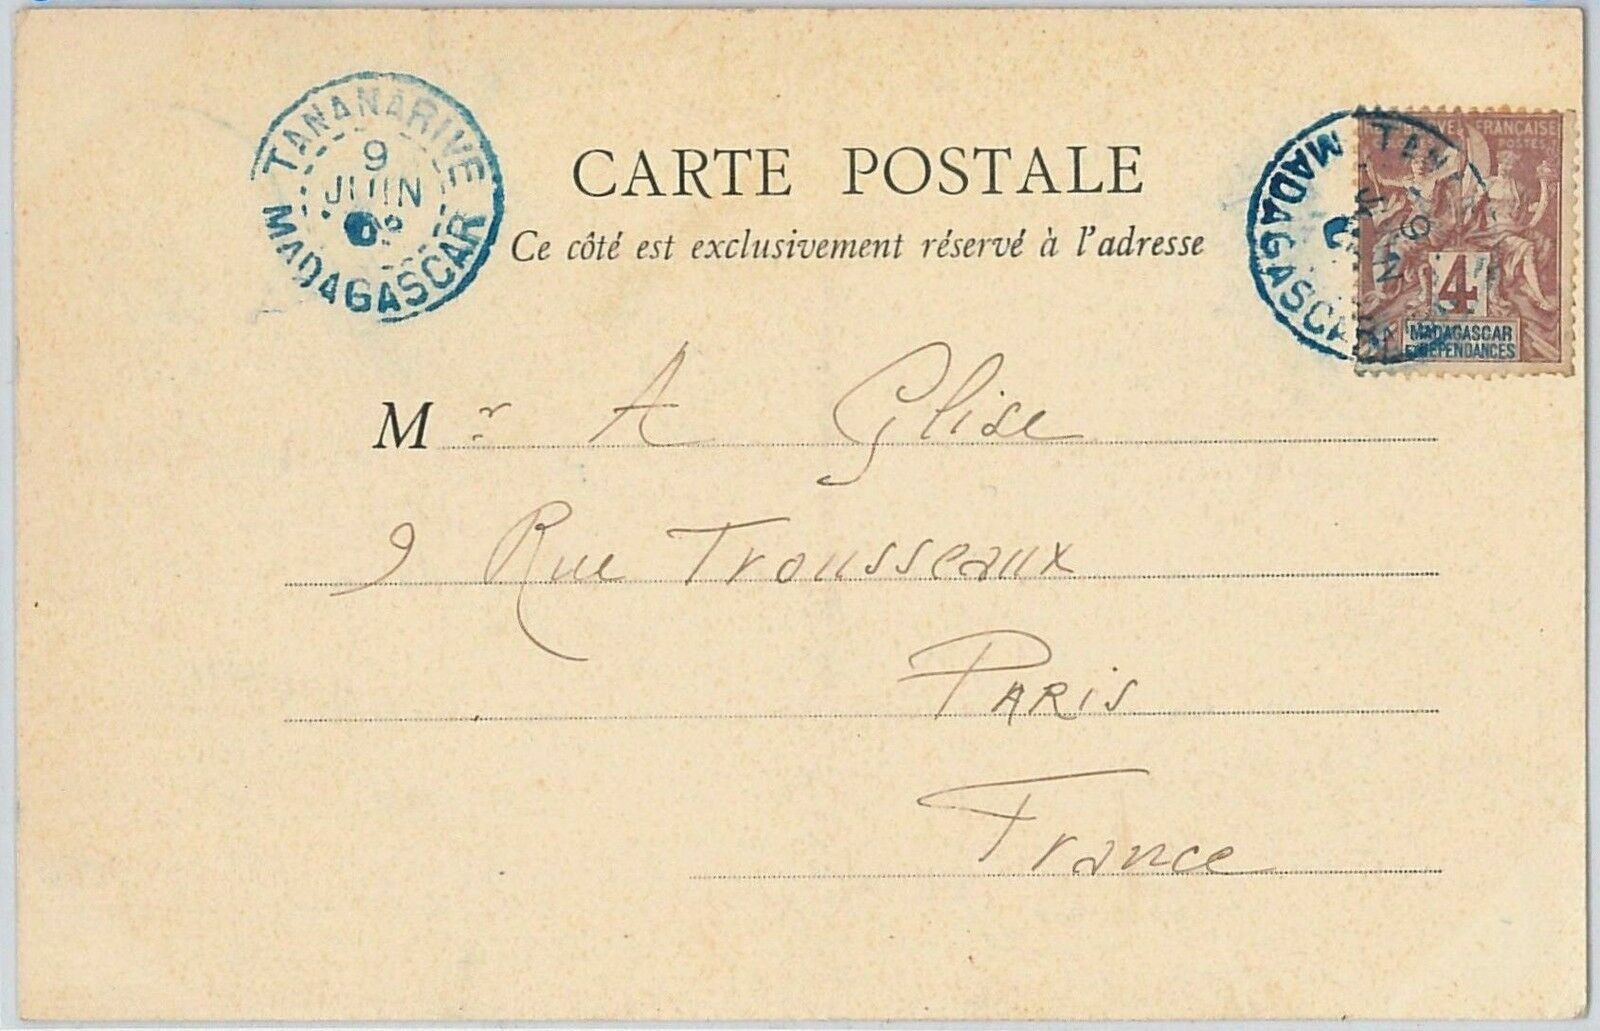 TANANARIVE
9
JUIN
MADAGASCAR
CARTE POSTALE
Ce côté est exclusivement réservé à l'adresse
MADAGASCAR
9
FRANÇAISE
POSTES
4
MADAGASCAR
ET DÉPENDANCES
Mr A Glise
9 Rue Trousseaux
PARIS
France